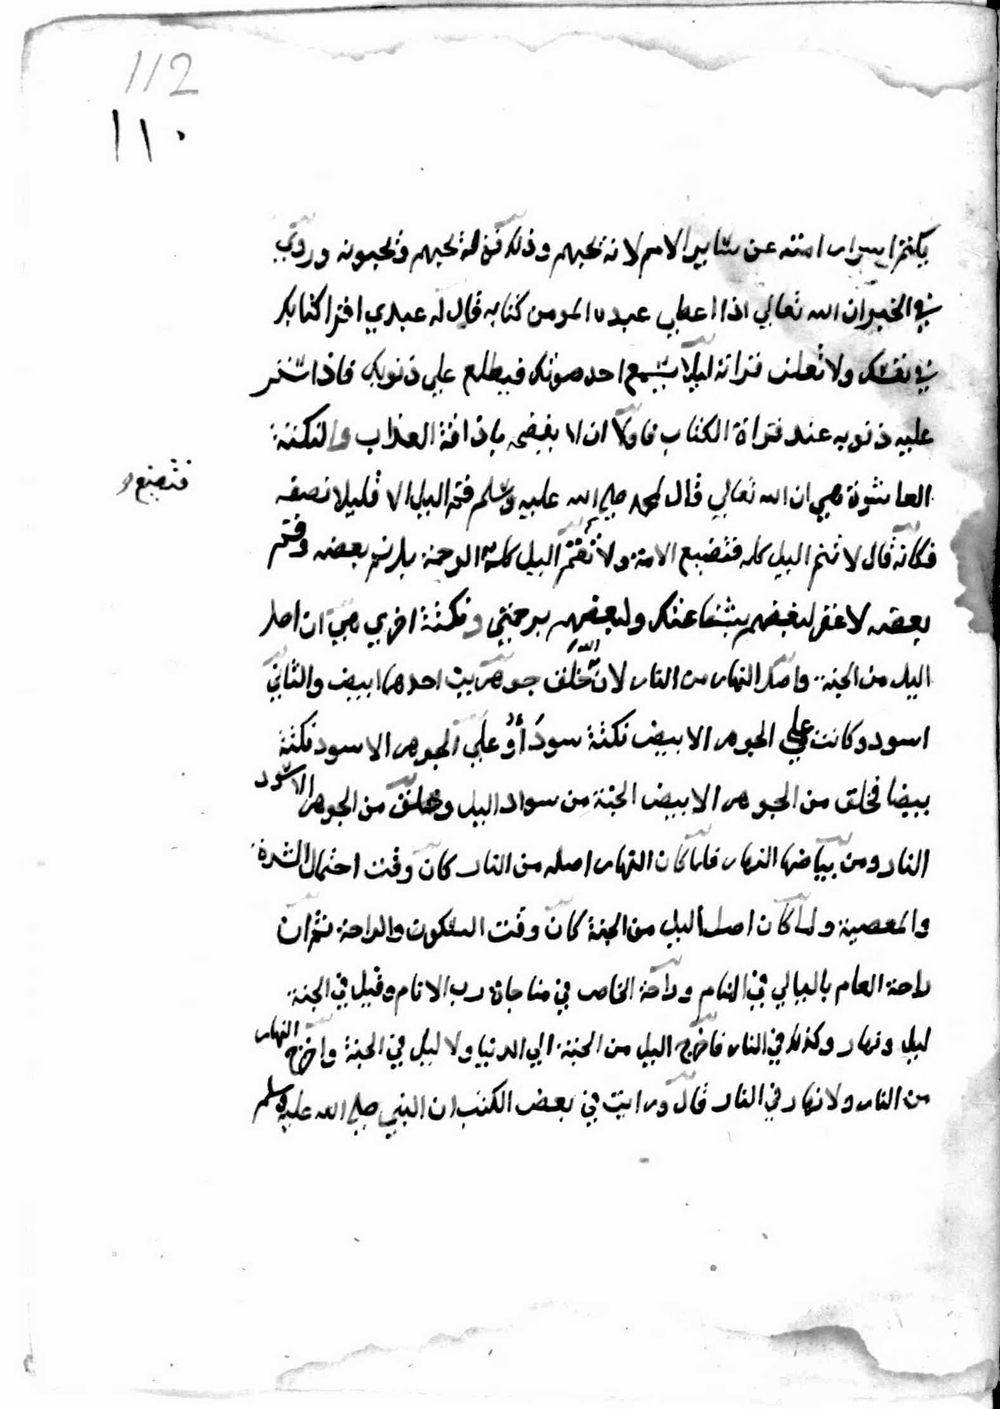 112
١١٠
يكتم اسرار امته عن ساير الامم لانه يحبهم وذلك قوله يحبهم ويحبونه وروي
في الخبر ان الله تعالي اذا اعطي عبده المومن كتابه قال له عبدي اقرا كتابك
في نفسك ولا تعلن قراته ليلا يسمع احد صوتك فيطلع علي ذنوبك فاذا ستر
عليه ذنوبه عند قراة الكتاب فاولا ان لا يفضحه باذاقة العذاب والنكتة
العاشرة هي ان الله تعالي قال لمحمد صلي الله عليه وسلم قم الليل الا قليلا نصفه
فتضيع
فكانه قال لا تنم اليل كله فتضيع الامة ولا تقم اليل كله الرحمة بل نم بعضه وقم
بعضه لاغفر لبعضهم بشفاعتك ولبعضهم برحمتي ونكتة اخري هي ان اصل
اليل من الجنة واصل النهار من النار لان الله خلق جوهرتين احدهما ابيض والثاني
اسود وكانت علي الجوهر الابيض نكتة سودا وعلي الجوهر الاسود نكتة
بيضا فخلق من الجوهر الابيض الجنة من سواد اليل وخلق من الجوهر الاسود
النار ومن بياضها النهار فلما كان النهار اصله من النار كان وقت احتمال الشدة
والمعصية ولما كان اصل اليل من الجنة كان وقت السكون والراحة ثم ان
راحة العام باليالي في المنام وراحة الخاص في مناجاة رب الانام وقيل في الجنة
ليل ونهار وكذلك في النار فاخرج اليل من الجنة الي الدنيا ولا ليل في الجنة واخرج النهار
من النار ولا نهار في النار قال ورايت في بعض الكتب ان النبي صلي الله عليه وسلم